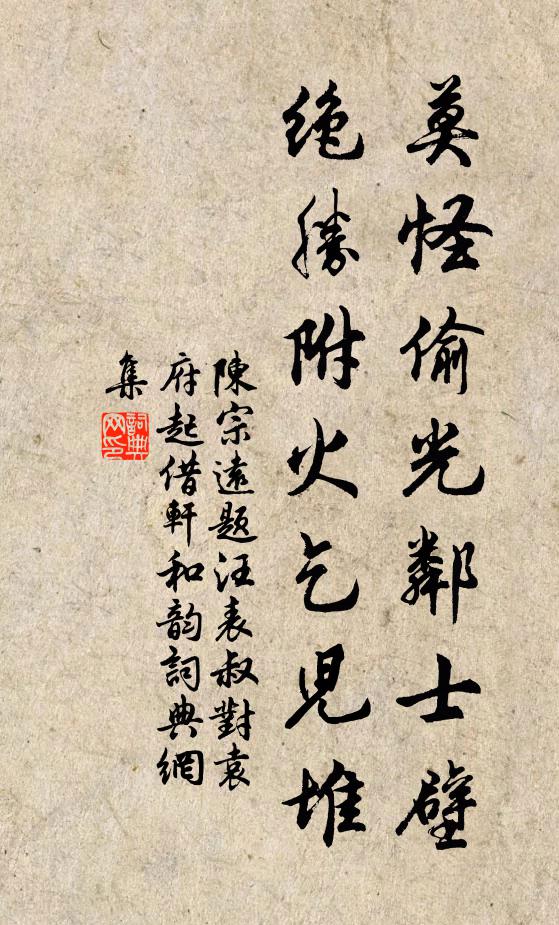 莫怪偷光鄰士壁
絶勝附火乞兒堆
陳宗遠題汪表叔對袁
府起借軒和韵詞典網
集
詞典
网印